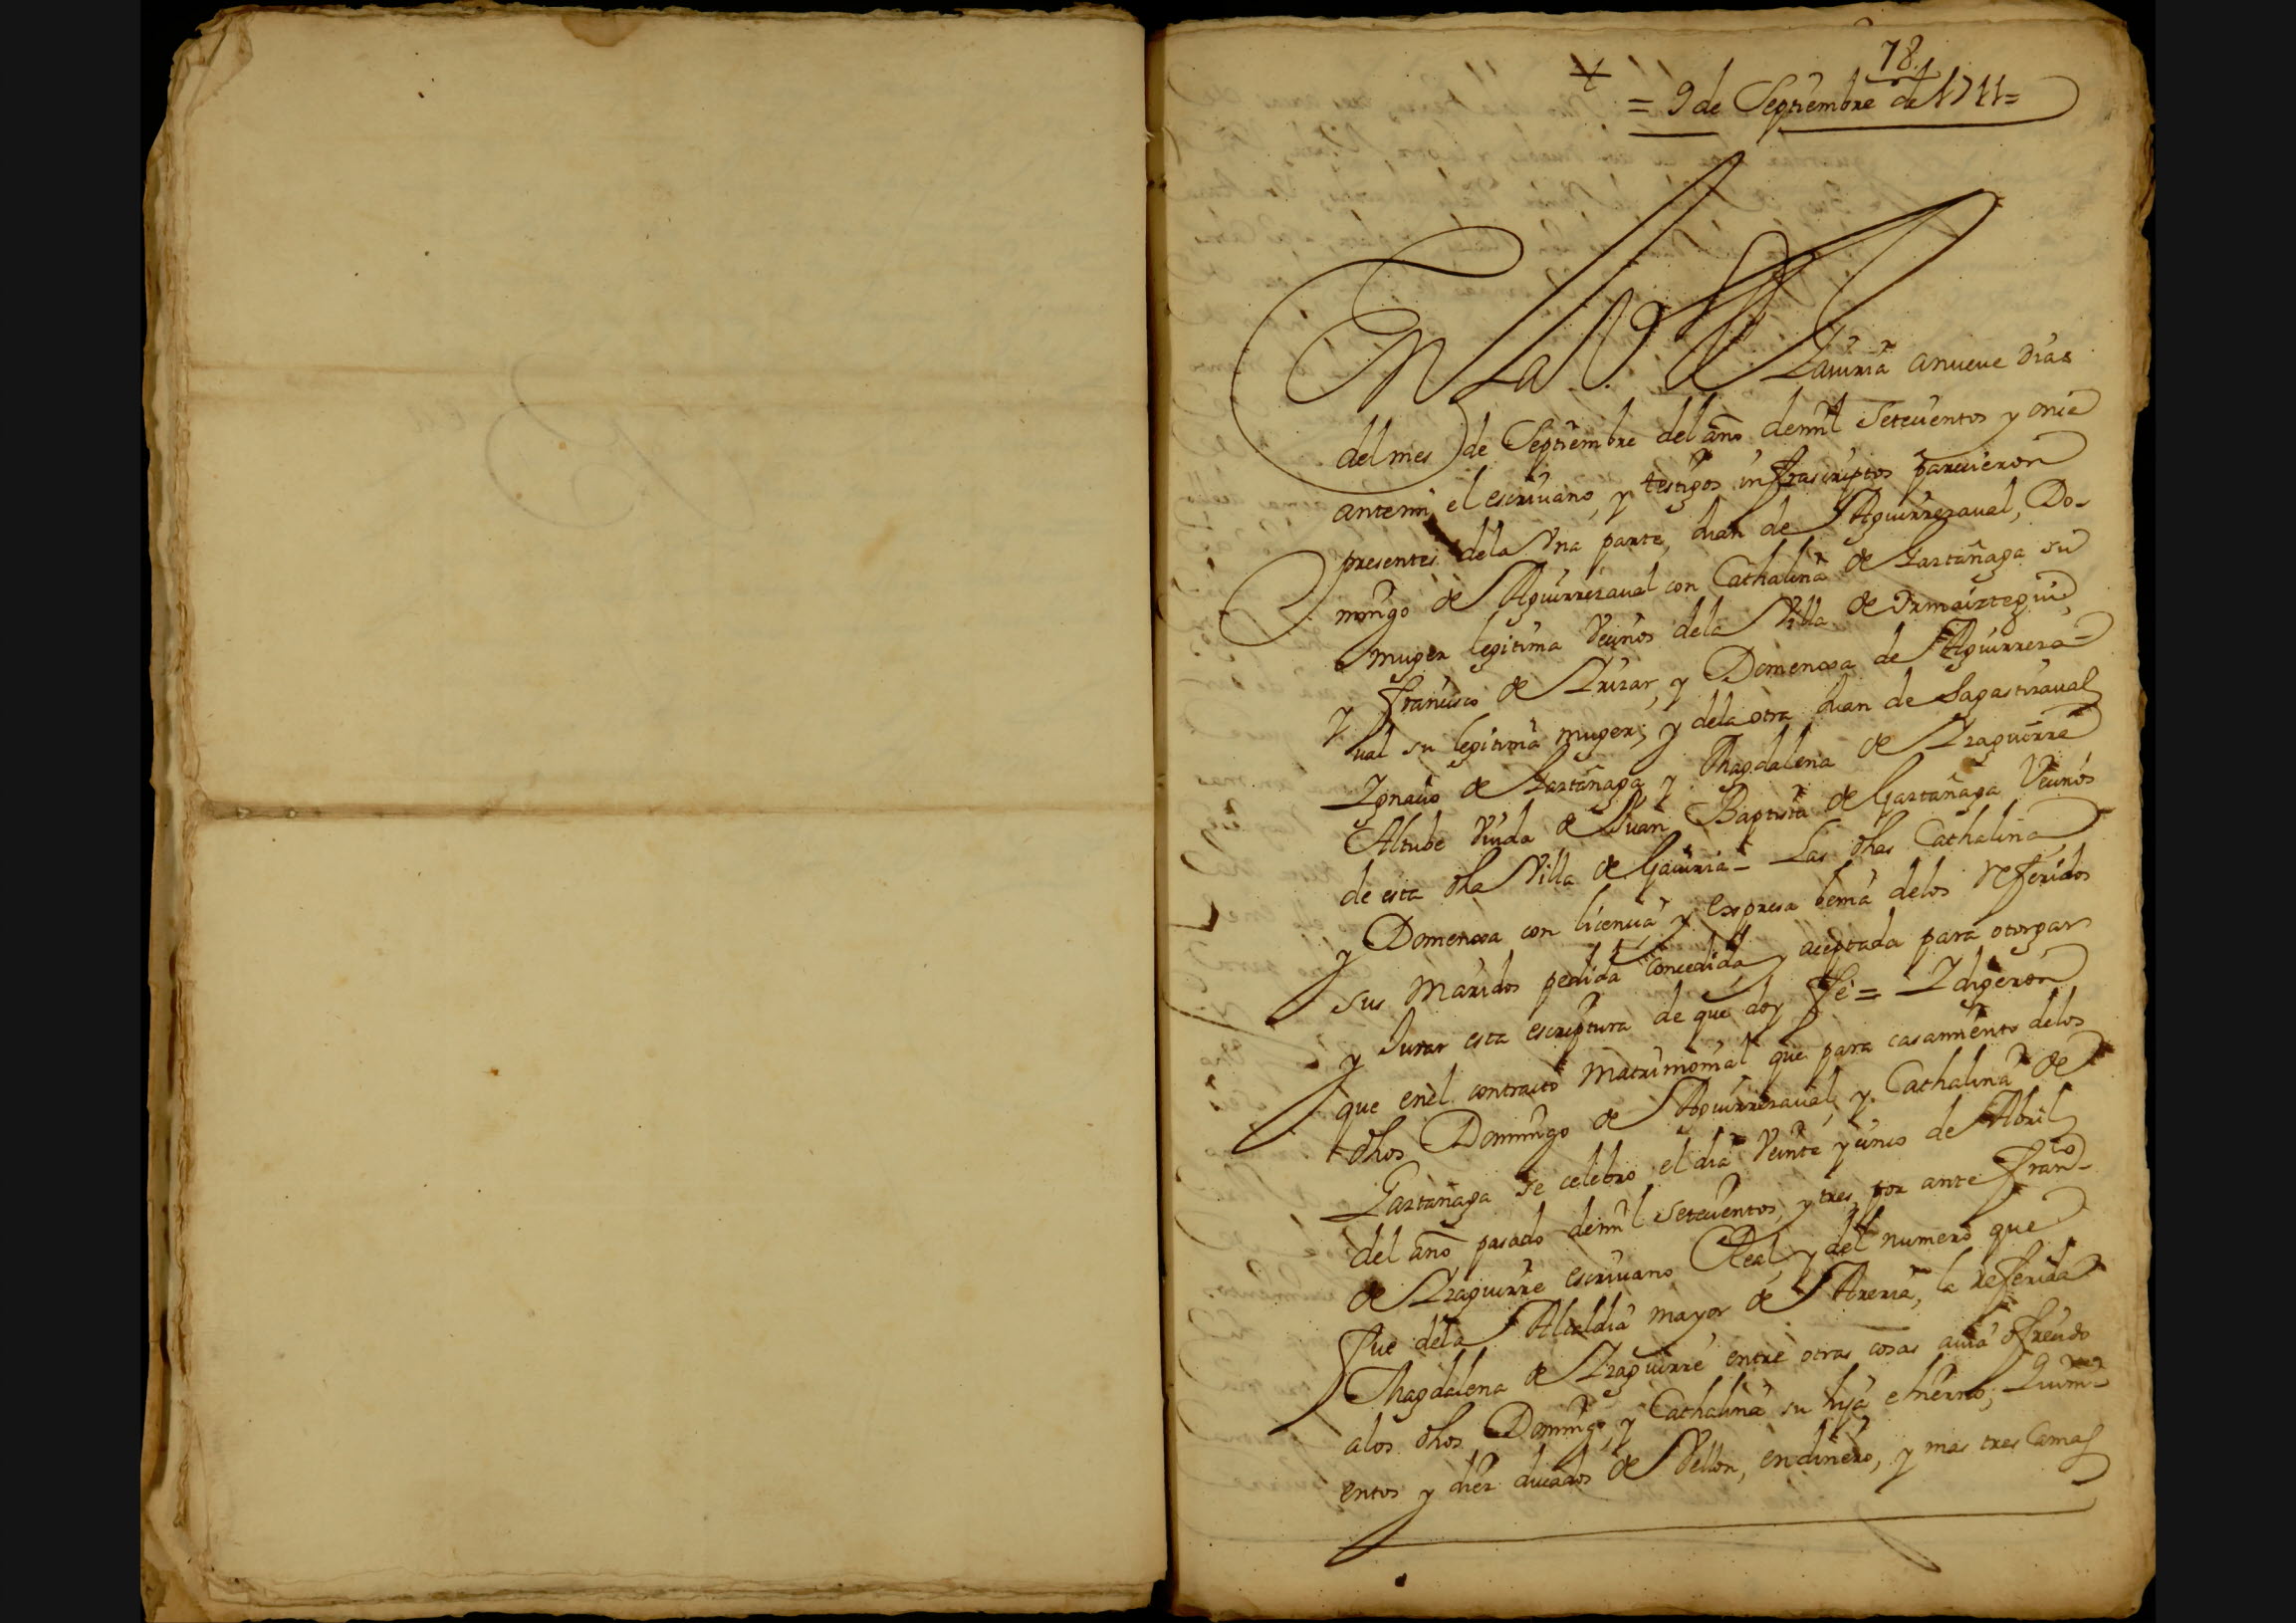 78.
= 9 de Septiembre de 1711=
En la Villa de Gaviria a nueve dias
del mes de Septiembre del año de mil Setecientos y once
ante mi el escrivano, y testigos infrascriptos parecieron
presentes dela Una parte, Juan de Aguirrezaval, Do-
mingo de Aguirrezaval con Cathalina de Gaztañaga su
muger legitima Vecinos dela Villa de Ormaiztegui,
y Francisco de Urizar, y Domenxa de Aguirreza-
val su legitima muger; y dela otra Juan de Sagastizaval
Ignacio de Gaztañaga y Magdalena de Izaguirre
Altube Viuda de Juan Baptista de Gaztañaga Vecinos
de esta dha Villa de Gaviria - Las dhas Cathalina
y Domenxa con licencia y expresa benia delos referidos
sus maridos pedida concedida y aceptada para otorgar
y Jurar esta escriptura de que doy fe = I digeron
que en el contracto matrimonial que para casamiento delos
dhos Domingo de Aguirrezaval, y Cathalina de
Gaztañaga se celebro el dia Veinte y cinco de Abril
del año pasado de mil setecientos, y tres por ante Fran.co
de Izaguirre escrivano Real, y del numero que
fue dela Alcaldia mayor de Areria, la referida
Magdalena de Izaguirre entre otras cosas avia ofrecido
alos dhos Domingo, y Cathalina su hija e hierno, Quini-
entos y diez ducados de Vellon, en dinero, y mas tres Camas